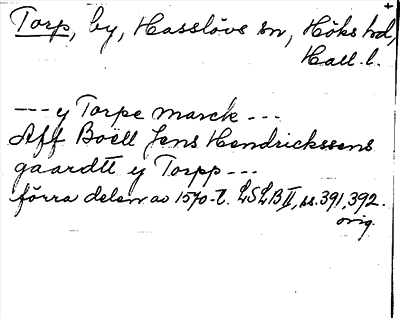 Torp, by, Hasslövs sn, Höks hd,
Hall. l.
--- y Torpe marck ---
Aff Boëll Jens Hendrickssens
gaardtt y Torpp ---
förra delen av 1570-t. LSLB II, ss. 391, 392.
orig.